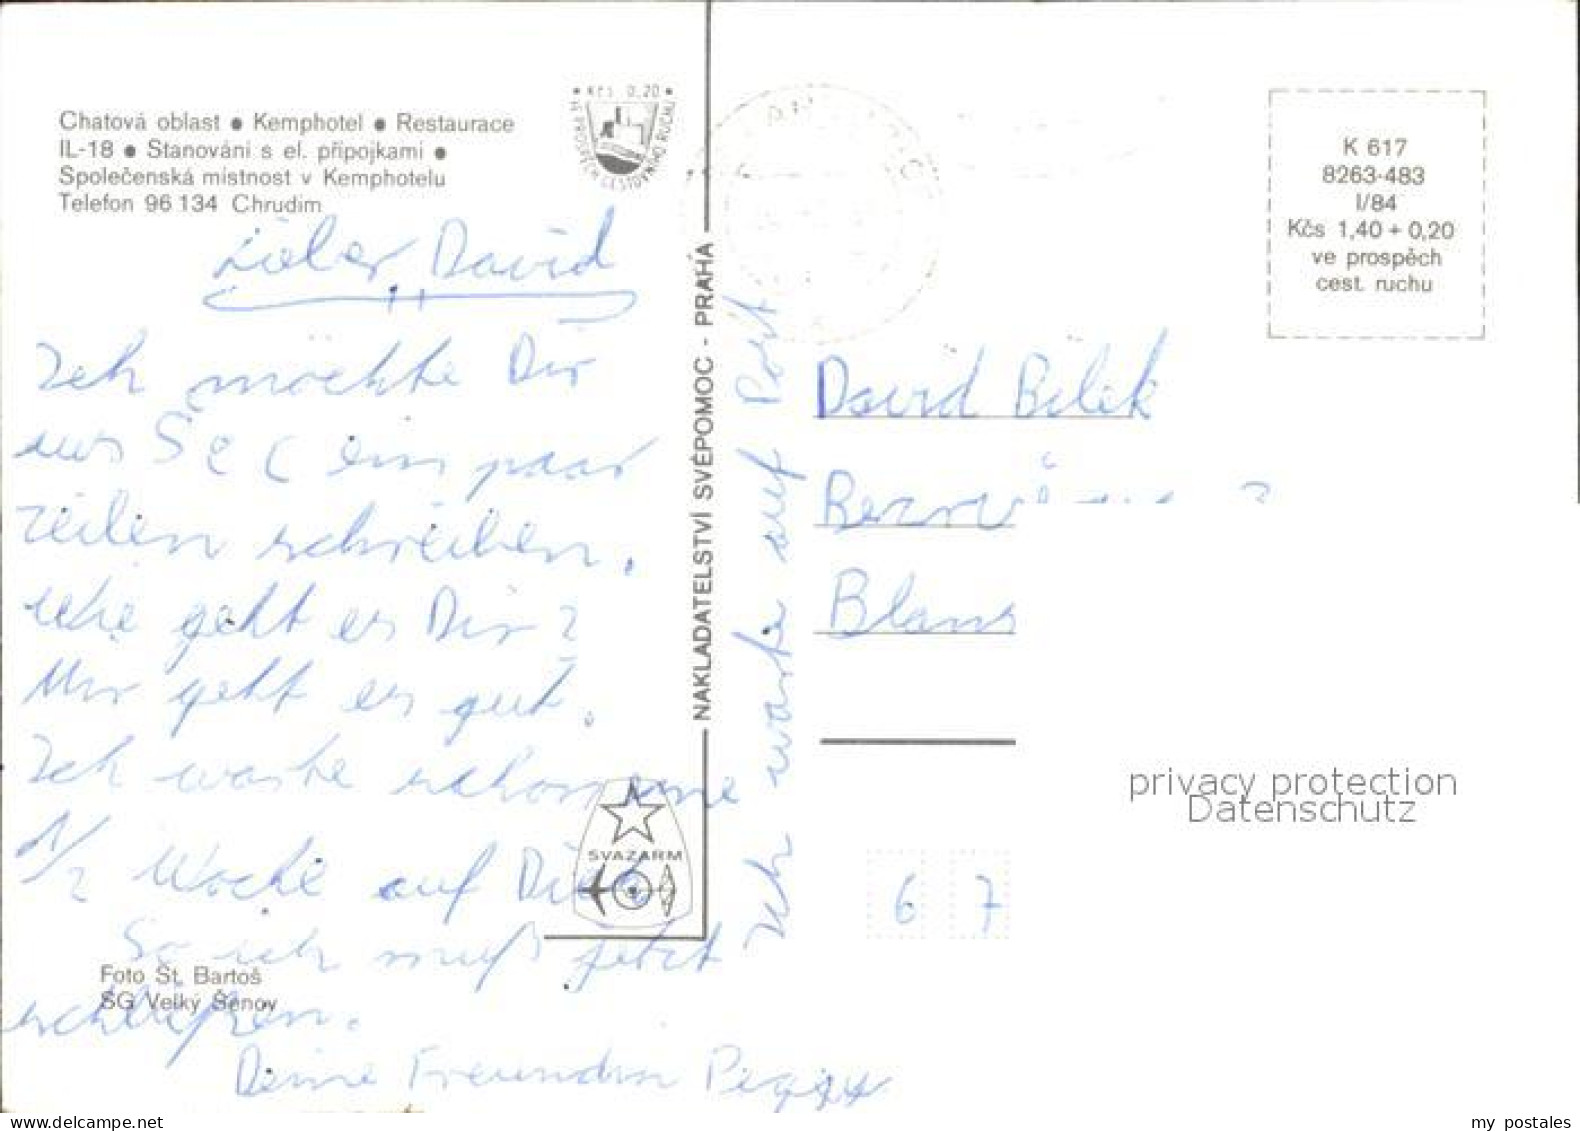 Chatová oblast • Kemphotel • Restaurace
IL-18 • Stanování s el. přípojkami •
Společenská místnost v Kemphotelu
Telefon 96 134 Chrudim
• Kčs 0,20 •
VE PROSPĚCH CESTOVNÍHO RUCHU
K 617
8263-483
I/84
Kčs 1,40 + 0,20
ve prospěch
cest. ruchu
Lieber David
Ich möchte Dir
aus SEČ ein paar
zeilen schreiben.
Wie geht es Dir?
Mir geht es gut.
Ich warte schon eine
1/2 Woche auf Dich
So ich muß jetzt
schließen.
Deine Freundin Peggy
Ich warte auf Post
NAKLADATELSTVÍ SVÉPOMOC - PRAHA
SVAZARM
Foto St. Bartoš
SG Velký Šenov
David Bílek
Blans
6 7
privacy protection
Datenschutz
my postales